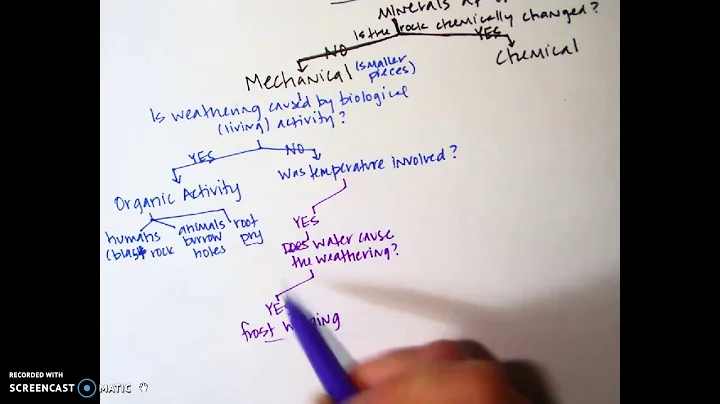 Minerals
Is the rock chemically changed?
NO YES
Mechanical (smaller pieces) Chemical
Is weathering caused by biological
(living) activity?
YES NO
Organic Activity
Was temperature involved?
humans
(blast rock
animals
burrow
holes
root
pry
YES
Does water cause
the weathering?
YES
frost
RECORDED WITH
SCREENCAST MATIC